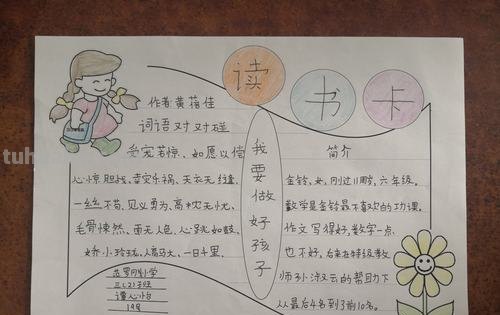 读书卡
作者:黄蓓佳
词语对对碰
受宠若惊、如愿以偿
心惊胆战、幸灾乐祸、天衣无缝、
一丝不苟、见义勇为、高枕无忧、
毛骨悚然、面无人色、心跳如鼓、
娇小玲珑、人高马大、一日千里.
我要做好孩子
简介
金铃,女,刚过11周岁,六年级。
数学是金铃最不喜欢的功课,
作文写得好,数学一点
也不好,后来在特级教
师孙淑云的帮助下
从最后4名到了前10名。
三(2)班
19号
tuh